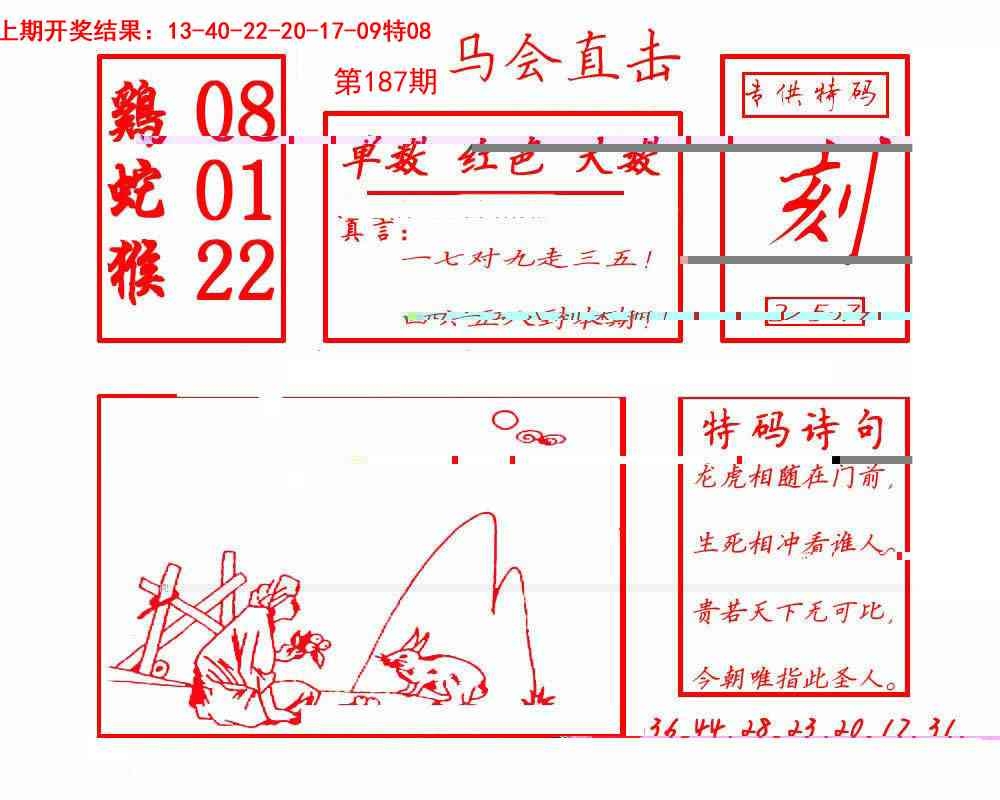 上期开奖结果：13-40-22-20-17-09特08
第187期 马会直击
鷄 08
蛇 01
猴 22
单数 红色 大数
真言：
一七对九走三五！
专供特码
刻
特码诗句
龙虎相随在门前，
生死相冲看谁人。
贵若天下无可比，
今朝唯指此圣人。
36.44.28.23.20.17.31.